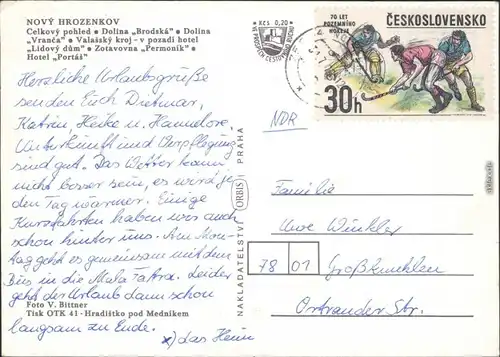 NOVÝ HROZENKOV
Celkový pohled • Dolina „Brodská“ • Dolina
„Vranča“ • Valašský kroj - v pozadí hotel
„Lidový dům“ • Zotavovna „Permoník“ •
Hotel „Portáš“
Herzliche Urlaubsgrüße
senden Euch Dietmar,
Katrin, Heike u. Hannelore.
Unterkunft und Verpflegung
sind gut. Das Wetter kann
nicht besser sein, es wird je-
den Tag wärmer. Einige
Kurzfahrten haben wir auch
schon hinter uns. Am Mon-
tag geht es gemeinsam mit dem
Bus in die Mala Fatra. Leider
geht der Urlaub dann schon
langsam zu Ende.
x) das Heim
Foto V. Bittner
Tisk OTK 41 - Hradištko pod Medníkem
NAKLADATELSTVÍ ORBIS PRAHA
Kčs 0,20
70 LET
POZEMNÍHO
HOKEJE
ČESKOSLOVENSKO
30h
NDR
Familie
Uwe Winkler
78 01 Großkmehlen
Ortrander Str.